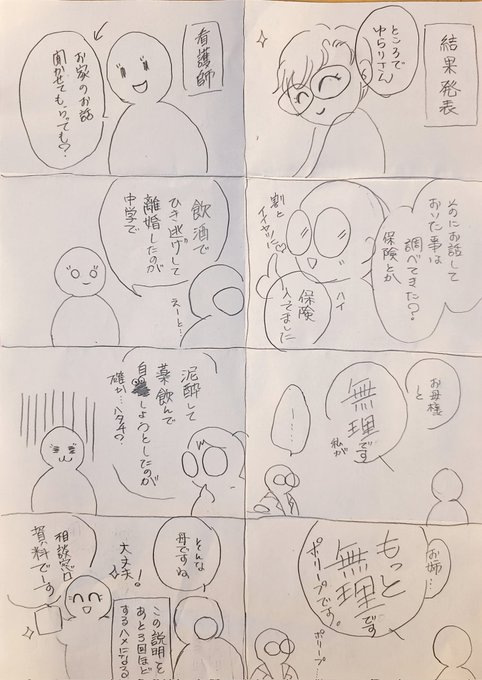 結果発表
ところで
ゆらりさん
お話して
おいた事は
調べてきた?
保険とか
ハイ
保険
入ってました
割と
イイヤツに♡
お母様
と
無理です
私が
ー…
お姉…
もっと
無理です
ポリープです。
ポリープ…
看護師
お家のお話
聞かせてもらっても?
飲酒で
ひき逃げして
離婚したのが
中学で
えーと…
泥酔して
薬飲んで
自 しようとしたのが
確か…ハタチ?
そんな
母ですね
大丈夫!
この説明を
あと3回ほど
するハメになる
相談窓口
資料でーす